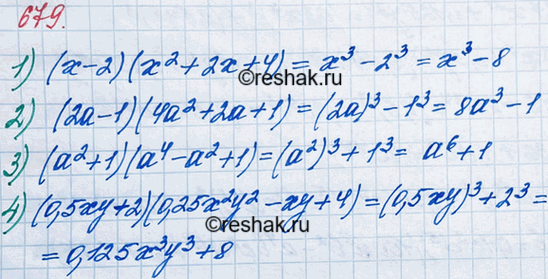 679.
1) (x-2)(x²+2x+4) = x³-2³ = x³-8
©reshak.ru
2) (2a-1)(4a²+2a+1) = (2a)³-1³ = 8a³-1
3) (a²+1)(a⁴-a²+1) = (a²)³+1³ = a⁶+1
4) (0,5xy+2)(0,25x²y²-xy+4) = (0,5xy)³+2³ =
©reshak.ru
= 0,125x³y³+8